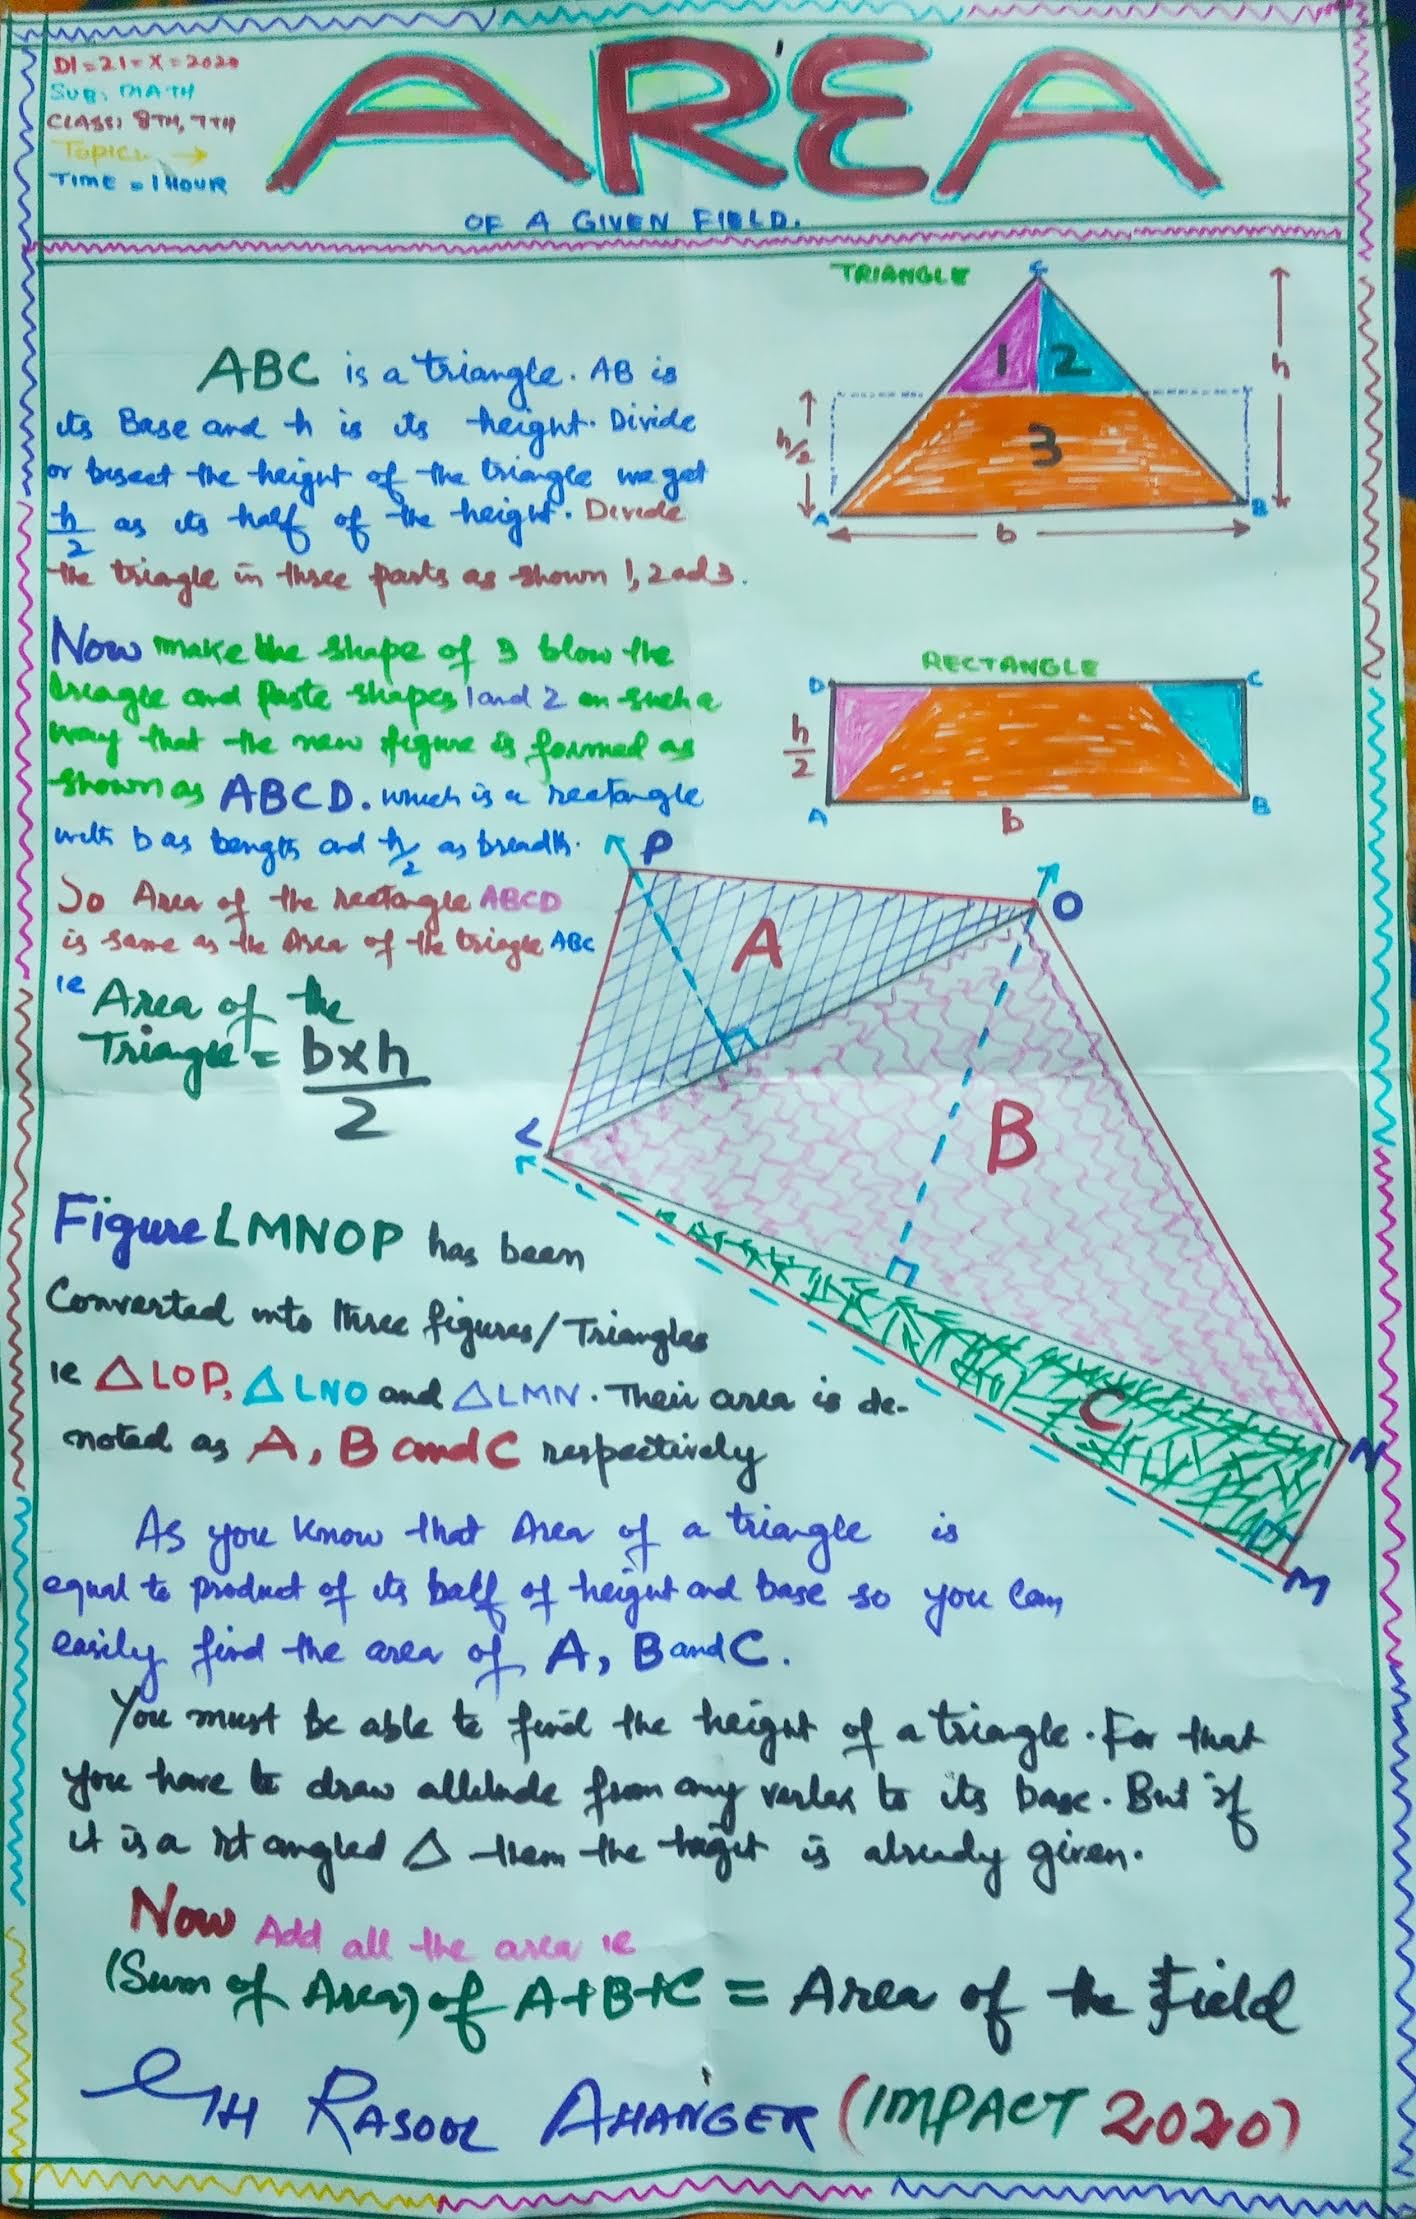 Dt = 21 = X = 2020
SUB: MATH
CLASS: 8TH, 7TH
Topic: →
TIME = 1 HOUR
AREA
OF A GIVEN FIELD.
TRIANGLE
C
1 2
3
h
h/2
A
B
b
ABC is a triangle. AB is
its Base and h is its height. Divide
or bisect the height of the triangle we get
h/2 as its half of the height. Divide
the triangle in three parts as shown 1, 2 ad 3.
Now make the shape of 3 blow the
triagle and paste shapes 1 and 2 on such a
way that the new figure is formed as
shown as ABCD. which is a rectangle
with b as length and h/2 as breadth.
So Area of the rectangle ABCD
is same as the Area of the triagle ABC
ie Area of the
Triangle = b×h/2
RECTANGLE
D
C
h/2
A
B
b
P
O
A
B
L
C
N
M
Figure LMNOP has been
Converted into three figures/Triangles
ie △LOP, △LNO and △LMN. Their area is de-
noted as A, B and C respectively
As you know that Area of a triangle is
equal to product of its half of height and base so you can
easily find the area of A, B and C.
You must be able to find the height of a triangle. For that
you have to draw altitude from any vertex to its base. But if
it is a rt angled △ then the height is already given.
Now Add all the area ie
(Sum of Area) of A+B+C = Area of the Field
GH RASOOL AHANGER (IMPACT 2020)